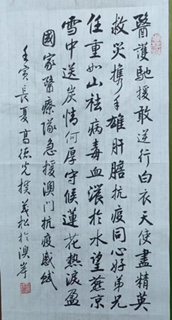 醫護馳援敢逆行白衣天使盡精英
救災攜手雄肝膽抗疫同心好弟兄
任重如山祛病毒血濃於水望燕京
雪中送炭情何厚守候蓮花熱淚盈
國家醫療隊急援澳門抗疫感賦
壬寅長夏高德光撰 義松於澳岸